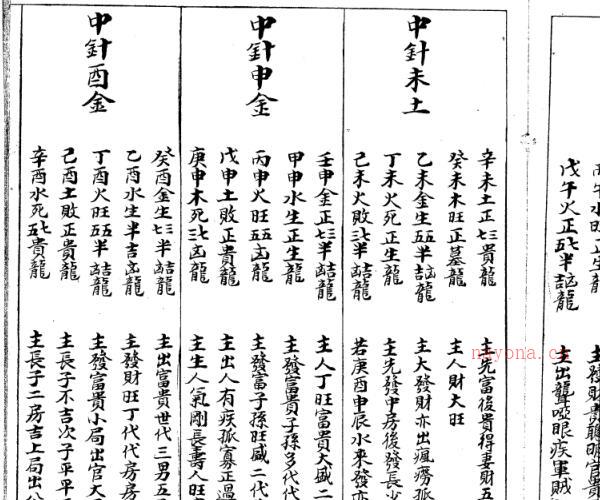 丙午水旺正生龍 主發財貴聰明官貴
戊午火正五七半吉凶龍 主出聾啞眼疾軍賊
中針未土
辛未土正七三貴龍 主先富後貴得妻財
癸未木旺正墓龍 主人財大旺
乙未金生五五半吉凶龍 主大發財亦出瘋癆孤
丁未水死正生龍 主先發中房後發長少
己未火敗三七半吉凶龍 若庚酉申辰水來發亦
中針申金
壬申金正七三半吉凶龍 主人丁旺富貴大盛二
甲申水生正生龍 主發富貴子孫多代代
丙申火旺五五凶龍 主發富子孫旺盛二代
戊申土敗正貴龍 主出人有疾孤寡正過
庚申木死三七凶龍 主生人氣剛長壽人旺
中針酉金
癸酉金生七三半吉凶龍 主出富貴世代三男五
乙酉水生半吉凶龍 主發財旺丁代代房房
丁酉火旺五五半吉凶龍 主發富貴小局出官大
己酉土敗正貴龍 主長子不吉次子平平
辛酉水死五七貴龍 主長子二房吉上局出